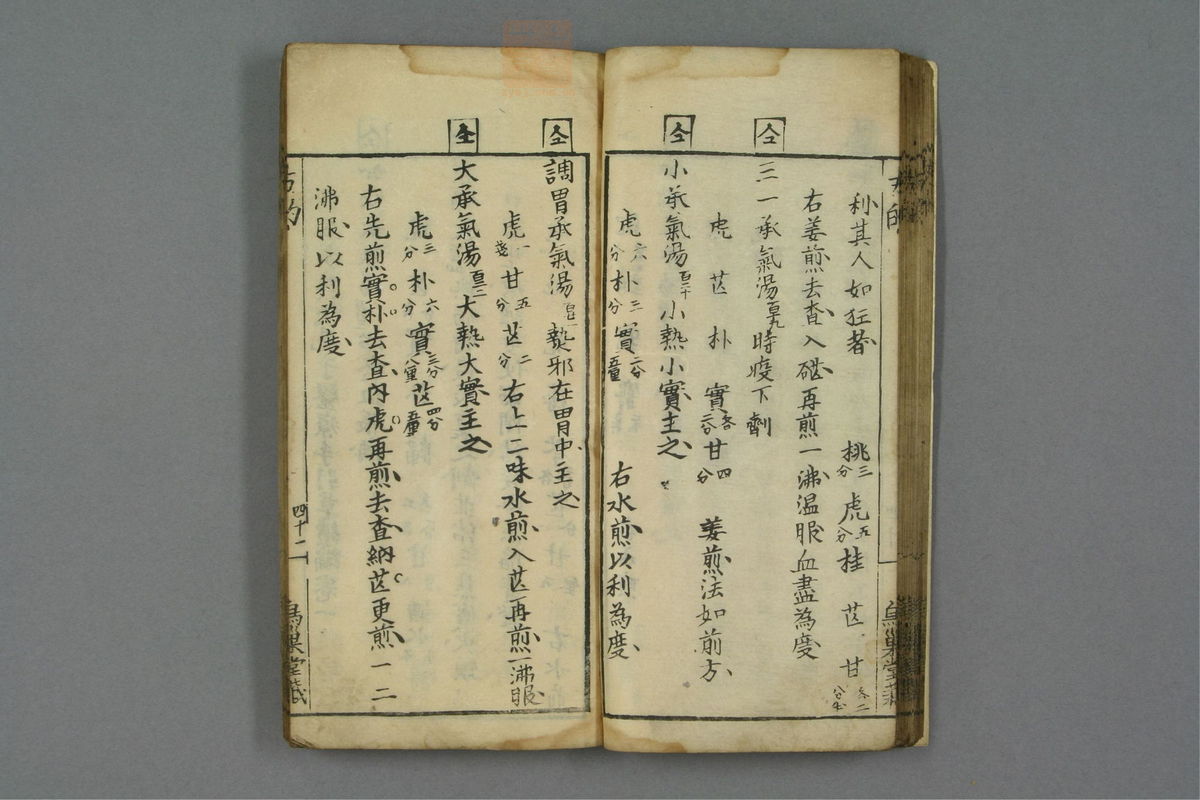 利其人如狂者 桃三分 虎五分 桂 芒 甘各二分
右姜煎去査入硭再煎一沸温服血盡為度
仝 三一承氣湯百十九 時疫下劑
虎 芒 朴 實各二分 甘四分 姜煎法如前方
仝 小承氣湯百二十 小熱小實主之
虎六分 朴三分 實二分五釐 右水煎以利為度
仝 調胃承氣湯 熱邪在胃中主之
虎一 甘五分 芒二分 右上二味水煎入芒再煎一沸服
仝 大承氣湯 大熱大實主之
虎三分 朴六分 實三分八釐 芒四分五釐
右先煎實朴去査內虎再煎去査納芒更煎一二
沸服以利為度
四十二
烏巢堂藏